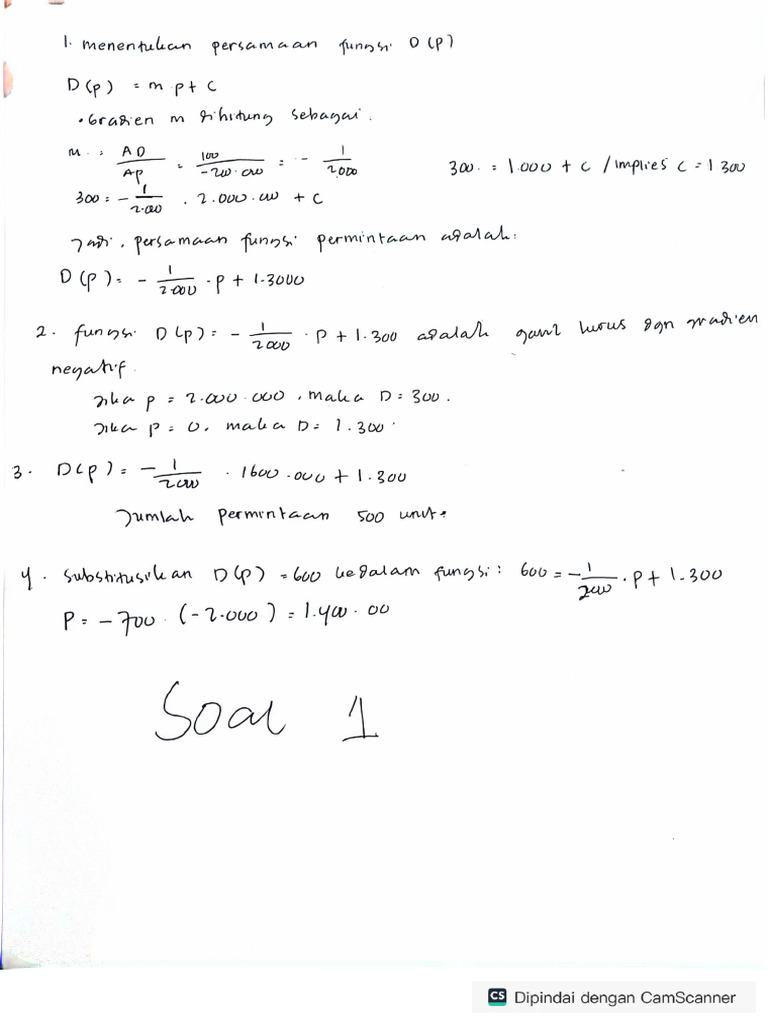 1. menentukan persamaan fungsi D(p)
D(p) = m p + c
• Gradien m dihitung sebagai.
m = ΔD/Δp = 100/-200.000 = - 1/2.000
300 = 1.000 + c /implies c = 1 300
300 = - 1/2.000 . 2.000.000 + c
Jadi, persamaan fungsi permintaan adalah:
D(p) = - 1/2.000 . p + 1.3000
2. fungsi D(p) = - 1/2000 . p + 1.300 adalah garis lurus dgn gradien
negatif.
Jika p = 2.000.000, maka D = 300.
Jika p = 0, maka D = 1.300.
3. D(p) = - 1/2000 . 1600.000 + 1.300
Jumlah permintaan 500 unit.
4. Substitusikan D(p) = 600 kedalam fungsi: 600 = - 1/2000 . p + 1.300
P = - 700 . (-2.000) = 1.400.00
Soal 1
CS Dipindai dengan CamScanner